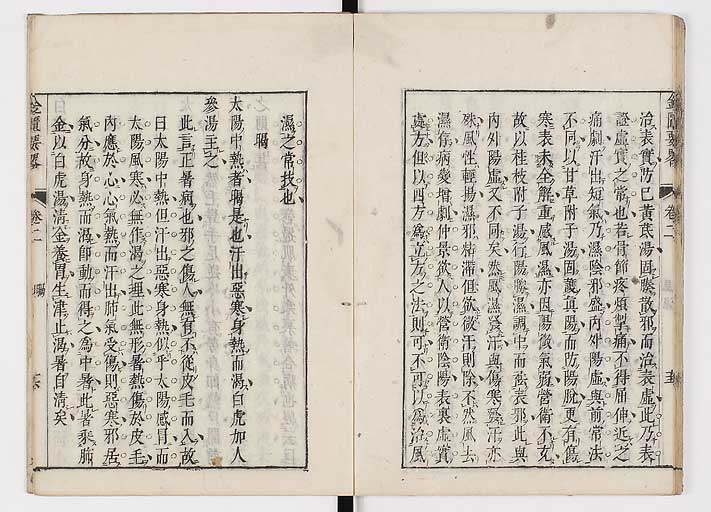 治表實防已黃芪湯固腠散邪而治表虛此乃表
證虛實之常也若骨節疼煩掣痛不得屈伸近之
痛劇汗出短氣乃濕陰邪盛內外陽虛與前常法
不同以甘草附子湯固護真陽而防陽脫更有傷
寒表未全解重感風濕亦因陽微氣弱營衛不充
故以桂枝附子湯行陽勝濕調中而強表邪此與
內外陽虛又不同矣然風濕發汗與傷寒發汗亦
殊風性輕揚濕邪粘滯但欲微汗則除不然風去
濕存病變增劇仲景欲人以營衛陰陽表裏虛實
處方但以四方為立方之法則可不可以為治風
濕之常技也
暍
太陽中熱者暍是也汗出惡寒身熱而渴白虎加人
參湯主之
此言正暑病也邪之傷人無有不從皮毛而入故
曰太陽中熱但汗出惡寒身熱似乎太陽感冒而
太陽風寒必無作渴之理此無形暑熱傷於皮毛
內應於心心氣熱而汗出肺氣受傷則惡寒邪居
氣分故身熱而渴即動而得之為中暑此皆乘肺
金以白虎湯清金養胃生津止渴暑自清矣
金匱要畧
卷二
暍